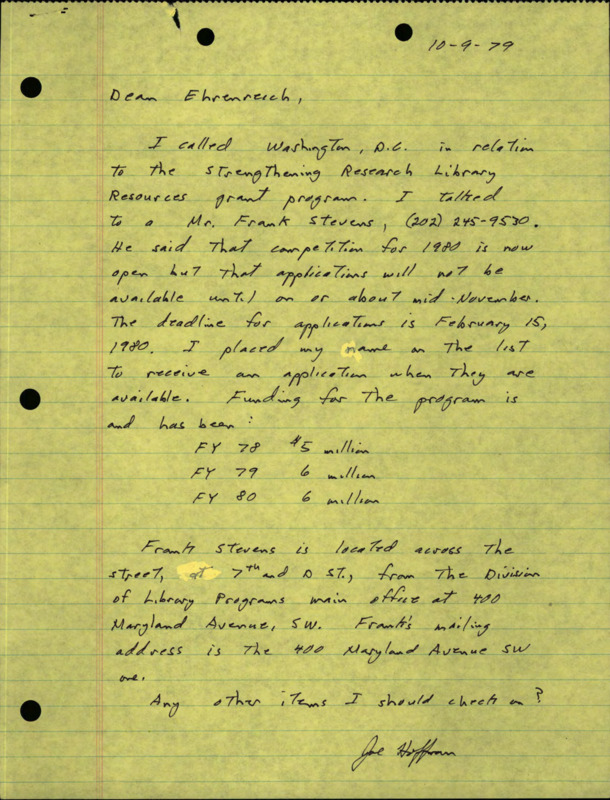 10-9-79
Dean Ehrenreich,
I called Washington, D.C. in relation
to the Strengthening Research Library
Resources grant program. I talked
to a Mr. Frank Stevens, (202) 245-9530.
He said that competition for 1980 is now
open but that applications will not be
available until on or about mid-November.
The deadline for applications is February 15,
1980. I placed my name on the list
to receive an application when they are
available. Funding for the program is
and has been:
FY 78 $5 million
FY 79 6 million
FY 80 6 million
Frank Stevens is located across the
street, at 7th and D St., from the Division
of Library Programs main office at 400
Maryland Avenue, SW. Frank's mailing
address is the 400 Maryland Avenue SW
one.
Any other items I should check on?
Joe Hoffman